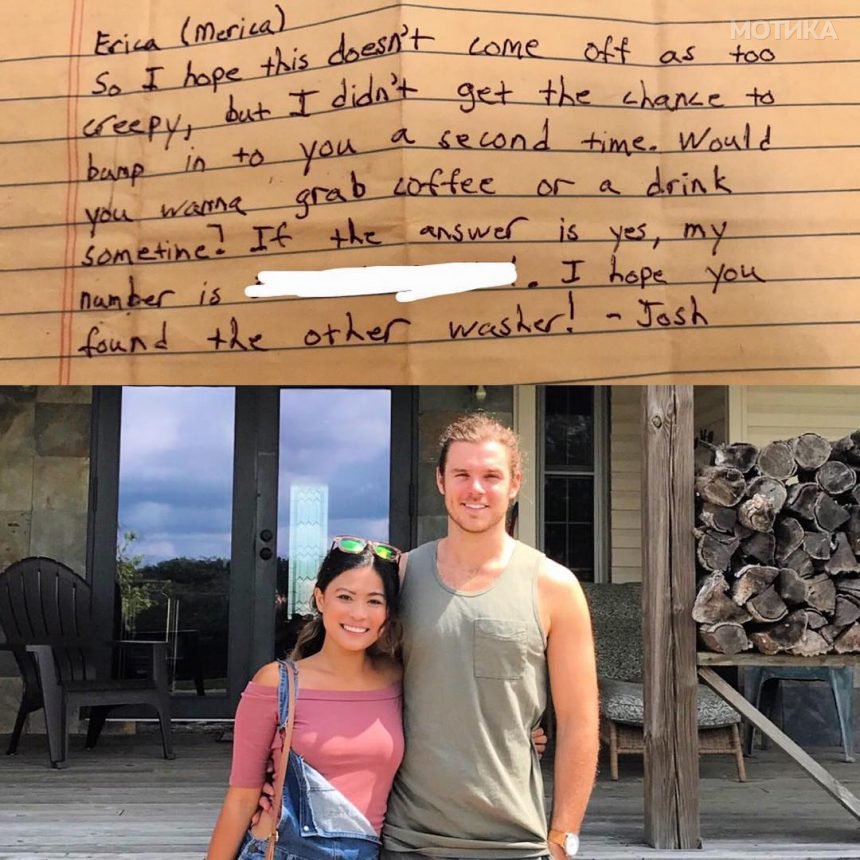 МОТИКА
Erica (merica)
So I hope this doesn't come off as too
creepy, but I didn't get the chance to
bump in to you a second time. Would
you wanna grab coffee or a drink
sometime? If the answer is yes, my
number is . I hope you
found the other washer! - Josh